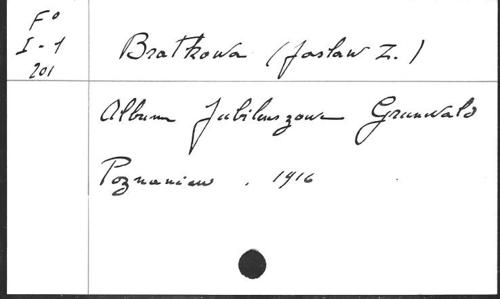 F°
I-1
201
Bratkowa (Jasław Z.)
Album Jubileuszowe Grunwald
Poznaniew . 1916